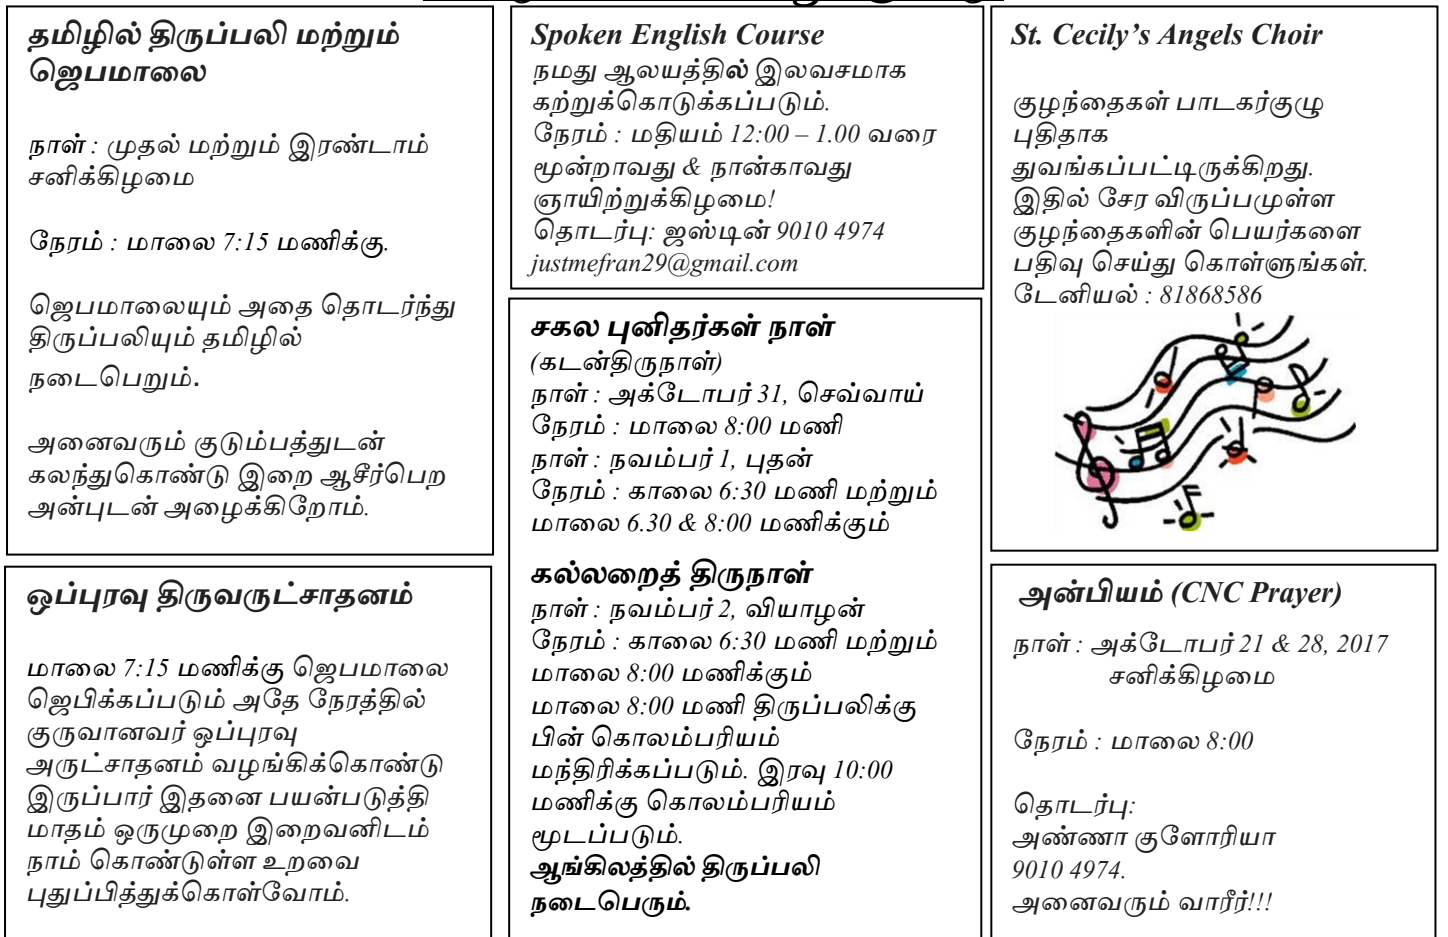 தமிழில் திருப்பலி மற்றும்
ஜெபமாலை
நாள் : முதல் மற்றும் இரண்டாம்
சனிக்கிழமை
நேரம் : மாலை 7:15 மணிக்கு.
ஜெபமாலையும் அதை தொடர்ந்து
திருப்பலியும் தமிழில்
நடைபெறும்.
அனைவரும் குடும்பத்துடன்
கலந்துகொண்டு இறை ஆசீர்பெற
அன்புடன் அழைக்கிறோம்.
ஒப்புரவு திருவருட்சாதனம்
மாலை 7:15 மணிக்கு ஜெபமாலை
ஜெபிக்கப்படும் அதே நேரத்தில்
குருவானவர் ஒப்புரவு
அருட்சாதனம் வழங்கிக்கொண்டு
இருப்பார் இதனை பயன்படுத்தி
மாதம் ஒருமுறை இறைவனிடம்
நாம் கொண்டுள்ள உறவை
புதுப்பித்துக்கொள்வோம்.
Spoken English Course
நமது ஆலயத்தில் இலவசமாக
கற்றுக்கொடுக்கப்படும்.
நேரம் : மதியம் 12:00 – 1.00 வரை
மூன்றாவது & நான்காவது
ஞாயிற்றுக்கிழமை!
தொடர்பு: ஜஸ்டின் 9010 4974
justmefran29@gmail.com
சகல புனிதர்கள் நாள்
(கடன்திருநாள்)
நாள் : அக்டோபர் 31, செவ்வாய்
நேரம் : மாலை 8:00 மணி
நாள் : நவம்பர் 1, புதன்
நேரம் : காலை 6:30 மணி மற்றும்
மாலை 6.30 & 8:00 மணிக்கும்
கல்லறைத் திருநாள்
நாள் : நவம்பர் 2, வியாழன்
நேரம் : காலை 6:30 மணி மற்றும்
மாலை 8:00 மணிக்கும்
மாலை 8:00 மணி திருப்பலிக்கு
பின் கொலம்பரியம்
மந்திரிக்கப்படும். இரவு 10:00
மணிக்கு கொலம்பரியம்
மூடப்படும்.
ஆங்கிலத்தில் திருப்பலி
நடைபெரும்.
St. Cecily’s Angels Choir
குழந்தைகள் பாடகர்குழு
புதிதாக
துவங்கப்பட்டிருக்கிறது.
இதில் சேர விருப்பமுள்ள
குழந்தைகளின் பெயர்களை
பதிவு செய்து கொள்ளுங்கள்.
டேனியல் : 81868586
அன்பியம் (CNC Prayer)
நாள் : அக்டோபர் 21 & 28, 2017
சனிக்கிழமை
நேரம் : மாலை 8:00
தொடர்பு:
அண்ணா குளோரியா
9010 4974.
அனைவரும் வாரீர்!!!